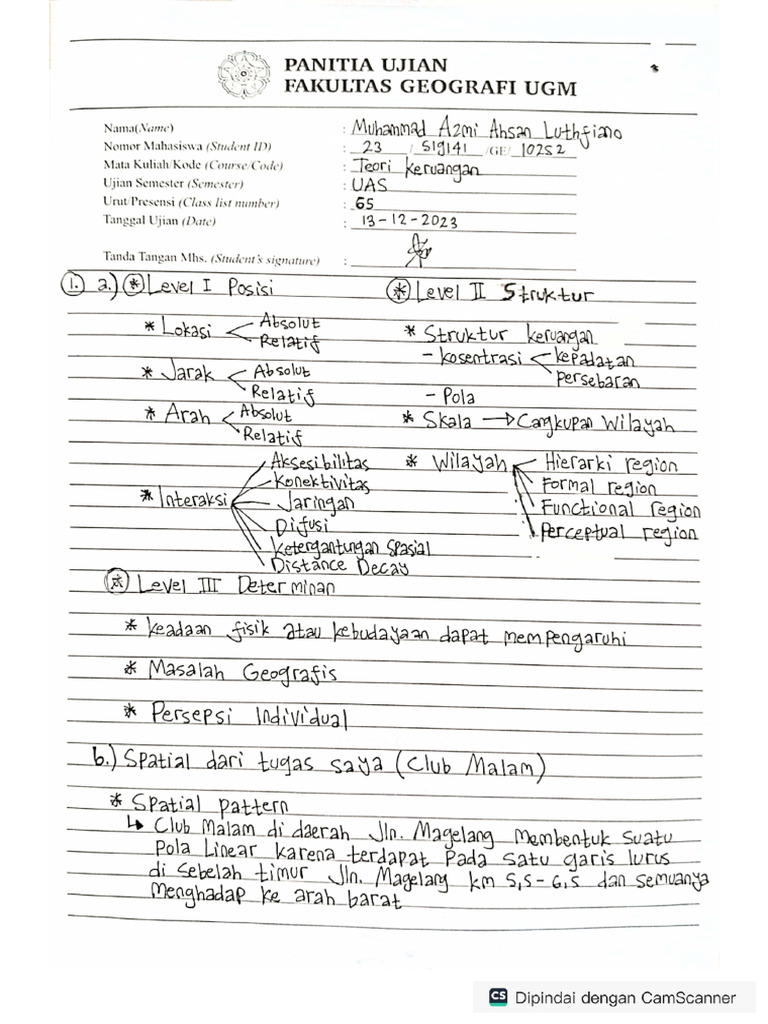 PANITIA UJIAN
FAKULTAS GEOGRAFI UGM
Nama(Name) : Muhammad Azmi Ahsan Luthfiano
Nomor Mahasiswa (Student ID) : 23 / 519141 /GE/ 10252
Mata Kuliah/Kode (Course/Code) : Teori keruangan
Ujian Semester (Semester) : UAS
Urut/Presensi (Class list number) : 65
Tanggal Ujian (Date) : 13-12-2023
Tanda Tangan Mhs. (Student's signature) :
1. a.) * Level I Posisi
* Lokasi Absolut
Relatif
* Jarak Absolut
Relatif
* Arah Absolut
Relatif
* Interaksi Aksesibilitas
Konektivitas
Jaringan
Difusi
Ketergantungan Spasial
Distance Decay
* Level II Struktur
* Struktur keruangan
- kosentrasi kepadatan
persebaran
- Pola
* Skala → Cangkupan Wilayah
* Wilayah Hierarki region
Formal region
Functional region
Perceptual region
* Level III Determinan
* keadaan fisik atau kebudayaan dapat mempengaruhi
* Masalah Geografis
* Persepsi Individual
b.) Spatial dari tugas saya (Club Malam)
* Spatial pattern
↳ Club Malam di daerah Jln. Magelang membentuk suatu
Pola Linear karena terdapat Pada satu garis lurus
di sebelah timur Jln. Magelang km 5,5-6,5 dan semuanya
menghadap ke arah barat
CS Dipindai dengan CamScanner